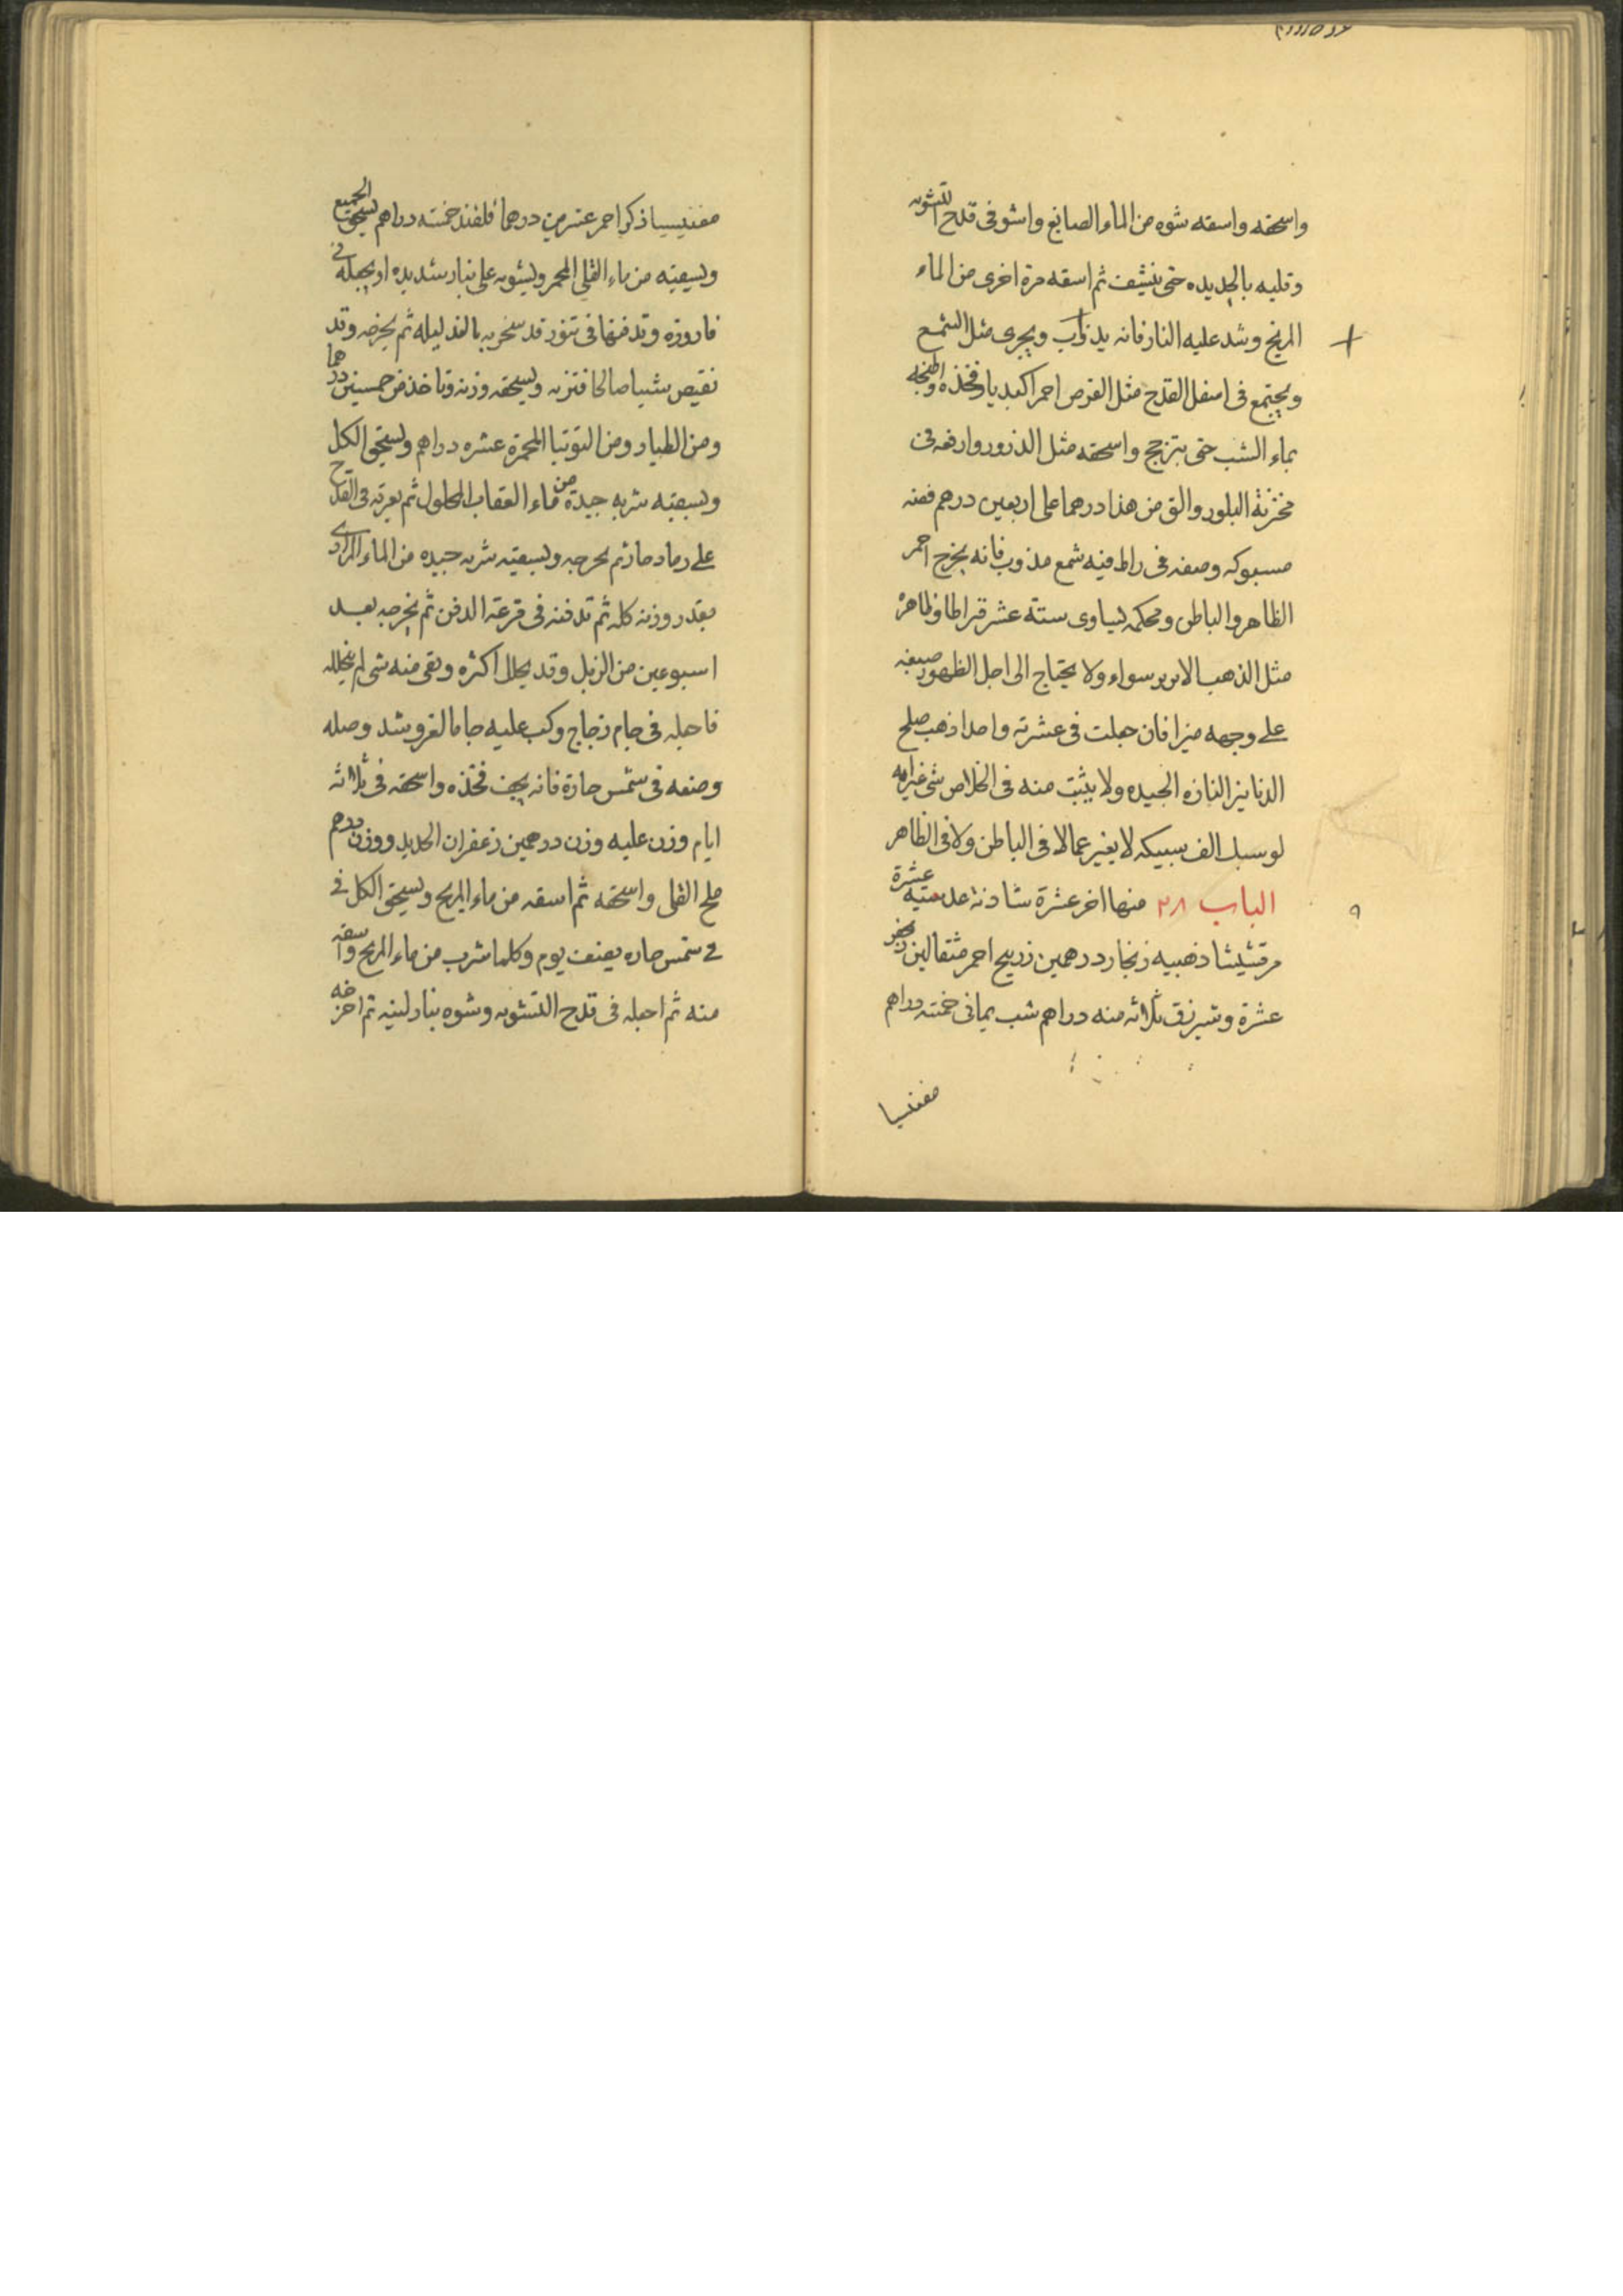 واسحقه واسقه شوه من الماء الصابغ واشو فى قدح التشويه
وقلبه بالحديده حتى ينشف ثم اسقه مرة اخرى من الماء
المريخ وشد عليه النار فانه يذوب ويجرى مثل الشمع
ويجتمع فى اسفل القدح مثل القرص احمر اكبديا فخذه واطبخه
بماء الشب حتى يتزجج واسحقه مثل الذرور وارفعه فى
مخزنة البلور والق من هذا درهما على اربعين درهم فضه
مسبوكه وصفه فى راط فيه شمع مذوب فانه يخرج احمر
الظاهر والباطن ومحكه يساوى ستة عشر قيراطا وظاهره
مثل الذهب الابريز سواء ولا يحتاج الى اجل الظهور صبغه
على وجهه ميزا فان جعلت فى عشرته واحدا ذهب صلح
الدنانيز النازه الجيده ولا يثبت منه فى الخلاص شى غيرانه
لو سبك الف سبيكه لا يغير عمالا فى الباطن ولا فى الظاهر
الباب ٢٨ منها اخر عشرة شادنه عدسيه عشرة
مرقشيشا ذهبيه زنجار درهمين زرنيح احمر مثقالين
عشرة وتيرزق ثلاثه منه دراهم شب يمانى خمسته دراهم
مغنيسا
مغنيسيا ذكر احمر عشرين درهما قلقند خمسته دراهم يسحق الجميع
ويسقيه من ماء القلى المحمر ويشويه على نار شديده او يجعله فى
قاروره وتدفنها فى تنور قد سخر به بالغد ليله ثم يخرجه وقد
نقيص شيا صالحا فتزنه ويسحقه وزنه وتاخذ من خمسين درهما
ومن الطيار ومن التوتيا المحمرة عشره دراهم ويسحق الكل
ويسقيه شربه جيدة من ماء العقاب المحلول ثم يعرقه فى القدح
على رماد حار ثم يخرجه ويسقيه شربه جيده من الماء المرارى
بقدر وزنه كله ثم تدفنه فى قرعة الدفن ثم يخرجه بعد
اسبوعين من الزبل وقد يحلل اكثره وبقى منه شى لم ينحلله
فاجعله فى جام زجاج وكب عليه جاما لغرو شد وصله
وضعه فى شمس حارة فانه يجف فخذه واسحقه فى ثلاثه
ايام وزن عليه وزن درهمين زعفران الحديد ووزن درهم
ملح القلى واسحقه ثم اسقه من ماء المريخ ويسحق الكل فى
فى شمس حاره يضعف يوم وكلما شرب من ماء المريخ واسقه
منه ثم اجعله فى قدح التشويه وشوه بنار لينه ثم اخرجه